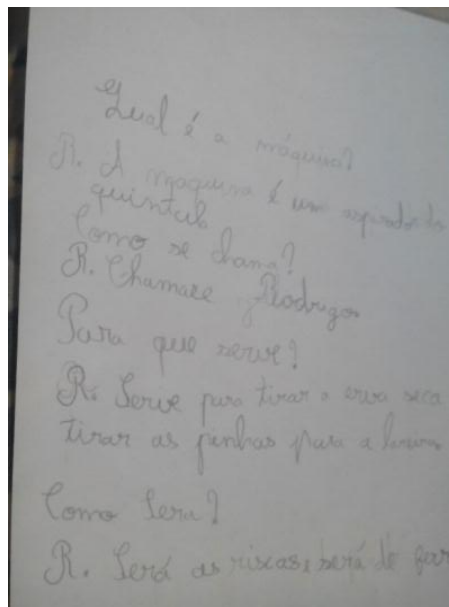 Qual é a máquina?
R. A maquina é um aspirador do
quintal
Como se chama?
R. Chamase Rodrigos
Para que serve?
R. Serve para tirar a erva seca
tirar as pinhas para a
Como Sera?
R. Será as riscas, será de